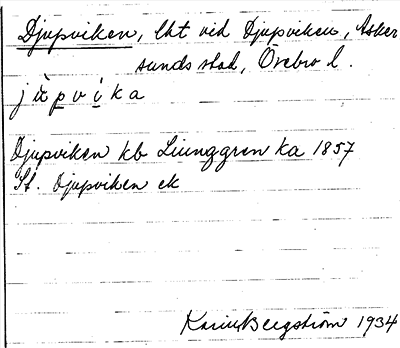 Djupviken, lht vid Djupviken, Asker
sunds stad, Örebro l.
jùpvika
Djupviken kb Ljunggren ka 1857
St. Djupviken ek
Karin Bergström 1934